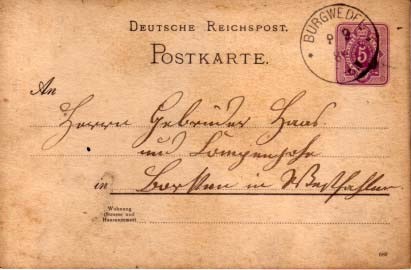 DEUTSCHE REICHSPOST.
POSTKARTE.
BURGWEDEL
5
An
Herrn Gebrüder Haas
und
in Borken in Westfahlen
Wohnung
(Strasse und
Hausnummer)